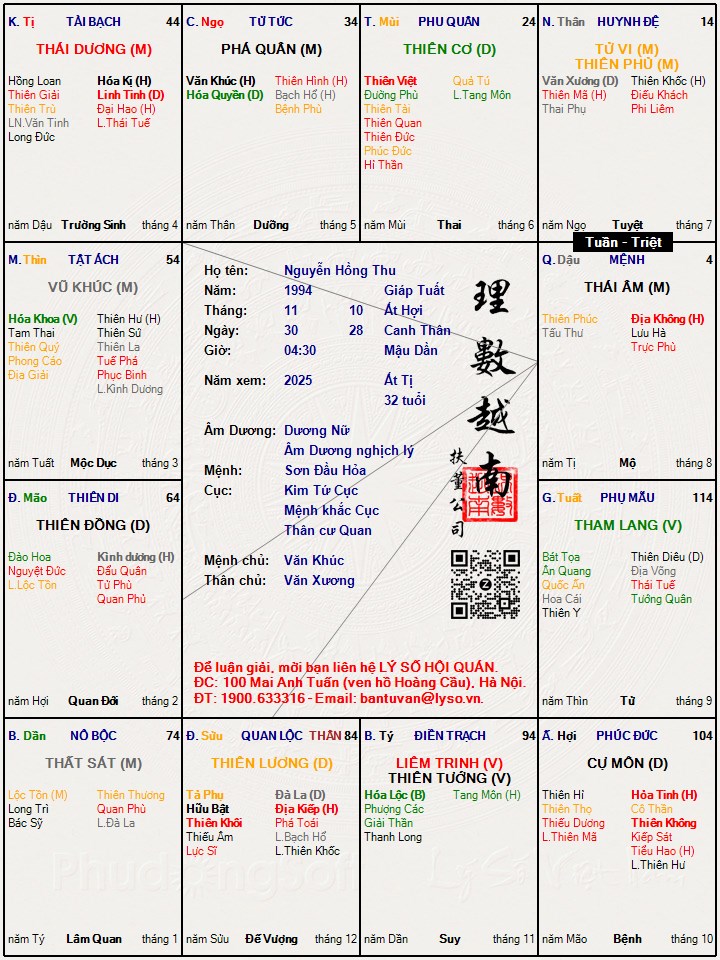 K. Tị TÀI BẠCH 44
THÁI DƯƠNG (M)
Hồng Loan Hóa Kị (H)
Thiên Giải Linh Tinh (D)
Thiên Trù Đại Hao (H)
LN.Văn Tinh L.Thái Tuế
Long Đức
năm Dậu Trường Sinh tháng 4
C. Ngọ TỬ TỨC 34
PHÁ QUÂN (M)
Văn Khúc (H) Thiên Hình (H)
Hóa Quyền (D) Bạch Hổ (H)
Bệnh Phù
năm Thân Dưỡng tháng 5
T. Mùi PHU QUÂN 24
THIÊN CƠ (D)
Thiên Việt Quả Tú
Đường Phù L.Tang Môn
Thiên Tài
Thiên Quan
Thiên Đức
Phúc Đức
Hỉ Thần
năm Mùi Thai tháng 6
N. Thân HUYNH ĐỆ 14
TỬ VI (M)
THIÊN PHỦ (M)
Văn Xương (D) Thiên Khốc (H)
Thiên Mã (H) Điếu Khách
Thai Phụ Phi Liêm
năm Ngọ Tuyệt tháng 7
Tuần - Triệt
M. Thìn TẬT ÁCH 54
VŨ KHÚC (M)
Hóa Khoa (V) Thiên Hư (H)
Tam Thai Thiên Sứ
Thiên Quý Thiên La
Phong Cáo Tuế Phá
Địa Giải Phục Binh
L.Kình Dương
năm Tuất Mộc Dục tháng 3
Họ tên: Nguyễn Hồng Thu
Năm: 1994 Giáp Tuất
Tháng: 11 10 Ất Hợi
Ngày: 30 28 Canh Thân
Giờ: 04:30 Mậu Dần
Năm xem: 2025 Ất Tị
32 tuổi
Âm Dương: Dương Nữ
Âm Dương nghịch lý
Mệnh: Sơn Đầu Hỏa
Cục: Kim Tứ Cục
Mệnh khắc Cục
Thân cư Quan
Mệnh chủ: Văn Khúc
Thân chủ: Văn Xương
理數越南
扶董公司
Để luận giải, mời bạn liên hệ LÝ SỐ HỘI QUÁN.
ĐC: 100 Mai Anh Tuấn (ven hồ Hoàng Cầu), Hà Nội.
ĐT: 1900.633316 - Email: bantuvan@lyso.vn.
Q. Dậu MỆNH 4
THÁI ÂM (M)
Thiên Phúc Địa Không (H)
Tấu Thư Lưu Hà
Trực Phù
năm Tị Mộ tháng 8
Đ. Mão THIÊN DI 64
THIÊN ĐỒNG (D)
Đào Hoa Kình dương (H)
Nguyệt Đức Đẩu Quân
L.Lộc Tồn Tử Phù
Quan Phủ
năm Hợi Quan Đới tháng 2
G. Tuất PHỤ MẪU 114
THAM LANG (V)
Bát Tọa Thiên Diêu (D)
Ân Quang Địa Võng
Quốc Ấn Thái Tuế
Hoa Cái Tướng Quân
Thiên Y
năm Thìn Tử tháng 9
B. Dần NÔ BỘC 74
THẤT SÁT (M)
Lộc Tồn (M) Thiên Thương
Long Trì Quan Phù
Bác Sỹ L.Đà La
năm Tý Lâm Quan tháng 1
Đ. Sửu QUAN LỘC THÂN 84
THIÊN LƯƠNG (D)
Tả Phụ Đà La (D)
Hữu Bật Địa Kiếp (H)
Thiên Khôi Phá Toái
Thiếu Âm L.Bạch Hổ
Lực Sĩ L.Thiên Khốc
năm Sửu Đế Vượng tháng 12
B. Tý ĐIỀN TRẠCH 94
LIÊM TRINH (V)
THIÊN TƯỚNG (V)
Hóa Lộc (B) Tang Môn (H)
Phượng Các
Giải Thần
Thanh Long
năm Dần Suy tháng 11
Ấ. Hợi PHÚC ĐỨC 104
CỰ MÔN (D)
Thiên Hỉ Hỏa Tinh (H)
Thiên Thọ Cô Thần
Thiếu Dương Thiên Không
L.Thiên Mã Kiếp Sát
Tiểu Hao (H)
L.Thiên Hư
năm Mão Bệnh tháng 10